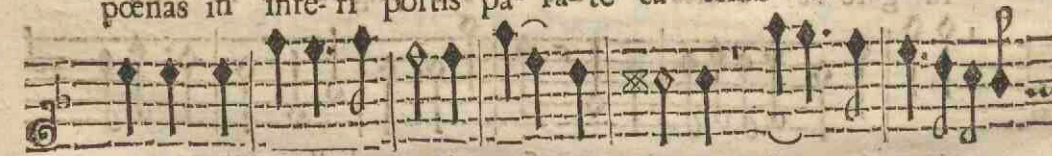 pœnas in infe- ri portis pa- ra- te